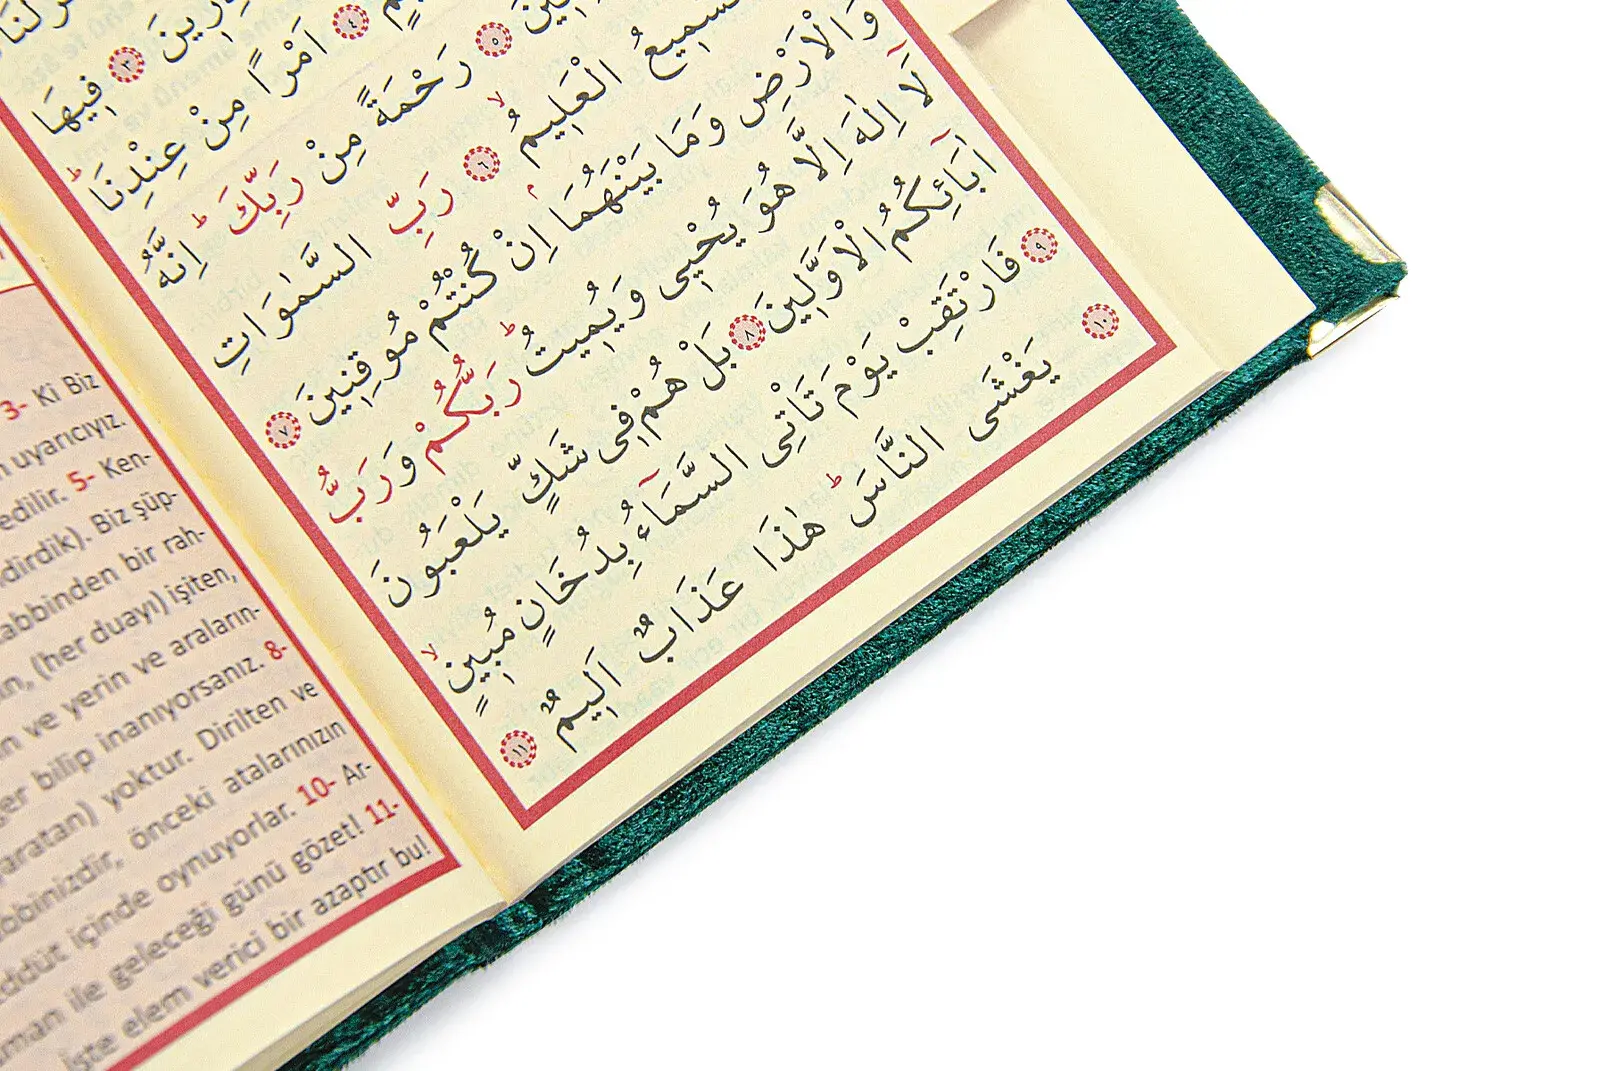 فِيهَا
اَمْرًا مِنْ عِنْدِنَاۜ
رَحْمَةً مِنْ رَبِّكَۜ اِنَّهُ
السَّمِيعُ الْعَلِيمُۙ ﴿٦﴾ رَبِّ السَّمٰوَاتِ
وَالْاَرْضِ وَمَا بَيْنَهُمَاۢ اِنْ كُنْتُمْ مُوقِنِينَ ﴿٧﴾
لَٓا اِلٰهَ اِلَّا هُوَ يُحْيِى وَيُمِيتُۜ رَبُّكُمْ وَرَبُّ
اٰبَٓائِكُمُ الْاَوَّلِينَ ﴿٨﴾ بَلْ هُمْ فِى شَكٍّ يَلْعَبُونَ
﴿٩﴾ فَارْتَقِبْ يَوْمَ تَاْتِى السَّمَٓاءُ بِدُخَانٍ مُبِينٍۙ
﴿١٠﴾ يَغْشَى النَّاسَۜ هٰذَا عَذَابٌ اَلِيمٌ ﴿١١﴾
3- Ki Biz
uyarıcıyız.
edilir. 5- Ken-
Biz şüp-
bir rah-
(her duayı) işiten,
ve yerin ve araların-
bilip inanıyorsanız. 8-
yoktur. Dirilten ve
önceki atalarınızın
içinde oynuyorlar. 10- Ar-
ile geleceği günü gözet! 11-
İşte elem verici bir azaptır bu!